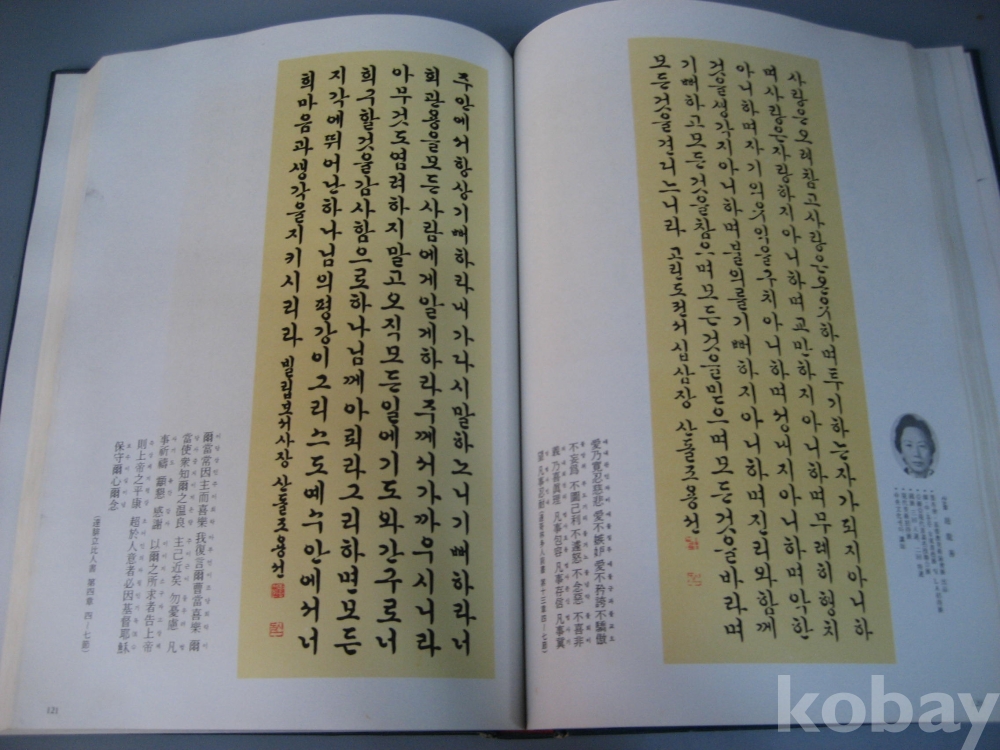 사랑은오래참고사랑은온유하며투기하는자가되지아니하
며사랑은자랑하지아니하며교만하지아니하며무례히행치
아니하며자기의유익을구치아니하며성내지아니하며악한
것을생각지아니하며불의를기뻐하지아니하며진리와함께
기뻐하고모든것을참으며모든것을믿으며모든것을바라며
모든것을견디느니라 고린도전서십삼장 산돌조용선
愛乃寬忍慈悲 愛不嫉妒 愛不矜誇不驕傲
不妄爲 不圖己利 不遽怒 不念惡 不喜非
義乃喜眞理 凡事包容 凡事存信 凡事冀
望 凡事忍耐
주안에서항상기뻐하라내가다시말하노니기뻐하라너
희관용을모든사람에게알게하라주께서가까우시니라
아무것도염려하지말고오직모든일에기도와간구로너
희구할것을감사함으로하나님께아뢰라그리하면모든
지각에뛰어난하나님의평강이그리스도예수안에서너
희마음과생각을지키시리라 빌립보서사장 산돌조용선
爾當常因主而喜樂 我復言爾曹當喜樂 爾
當使衆知爾之温良 主己近矣 勿憂慮 凡
事祈禱 籲懇 感謝 以爾之所求者告上帝
則上帝之平康 超於人意者必因基督耶穌
保守爾心爾念
(達腓立比人書 第四章 四~七節)
121
kobay